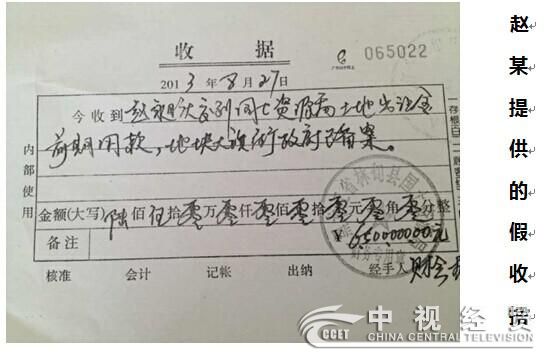 收据
065022
2013年8月27日
今收到赵家 交到国土资源局土地出让金
前期用款，地块大 矿政府 备案。
内部使用
金额(大写) 陆佰伍拾零万零仟零佰零拾零元零角零分整
备注
￥6500000.00元
财务专用章
核准 会计 记帐 出纳 经手人 财会
赵某提供的假收据
中视经贸
CCET CHINA CENTRAL TELEVISION